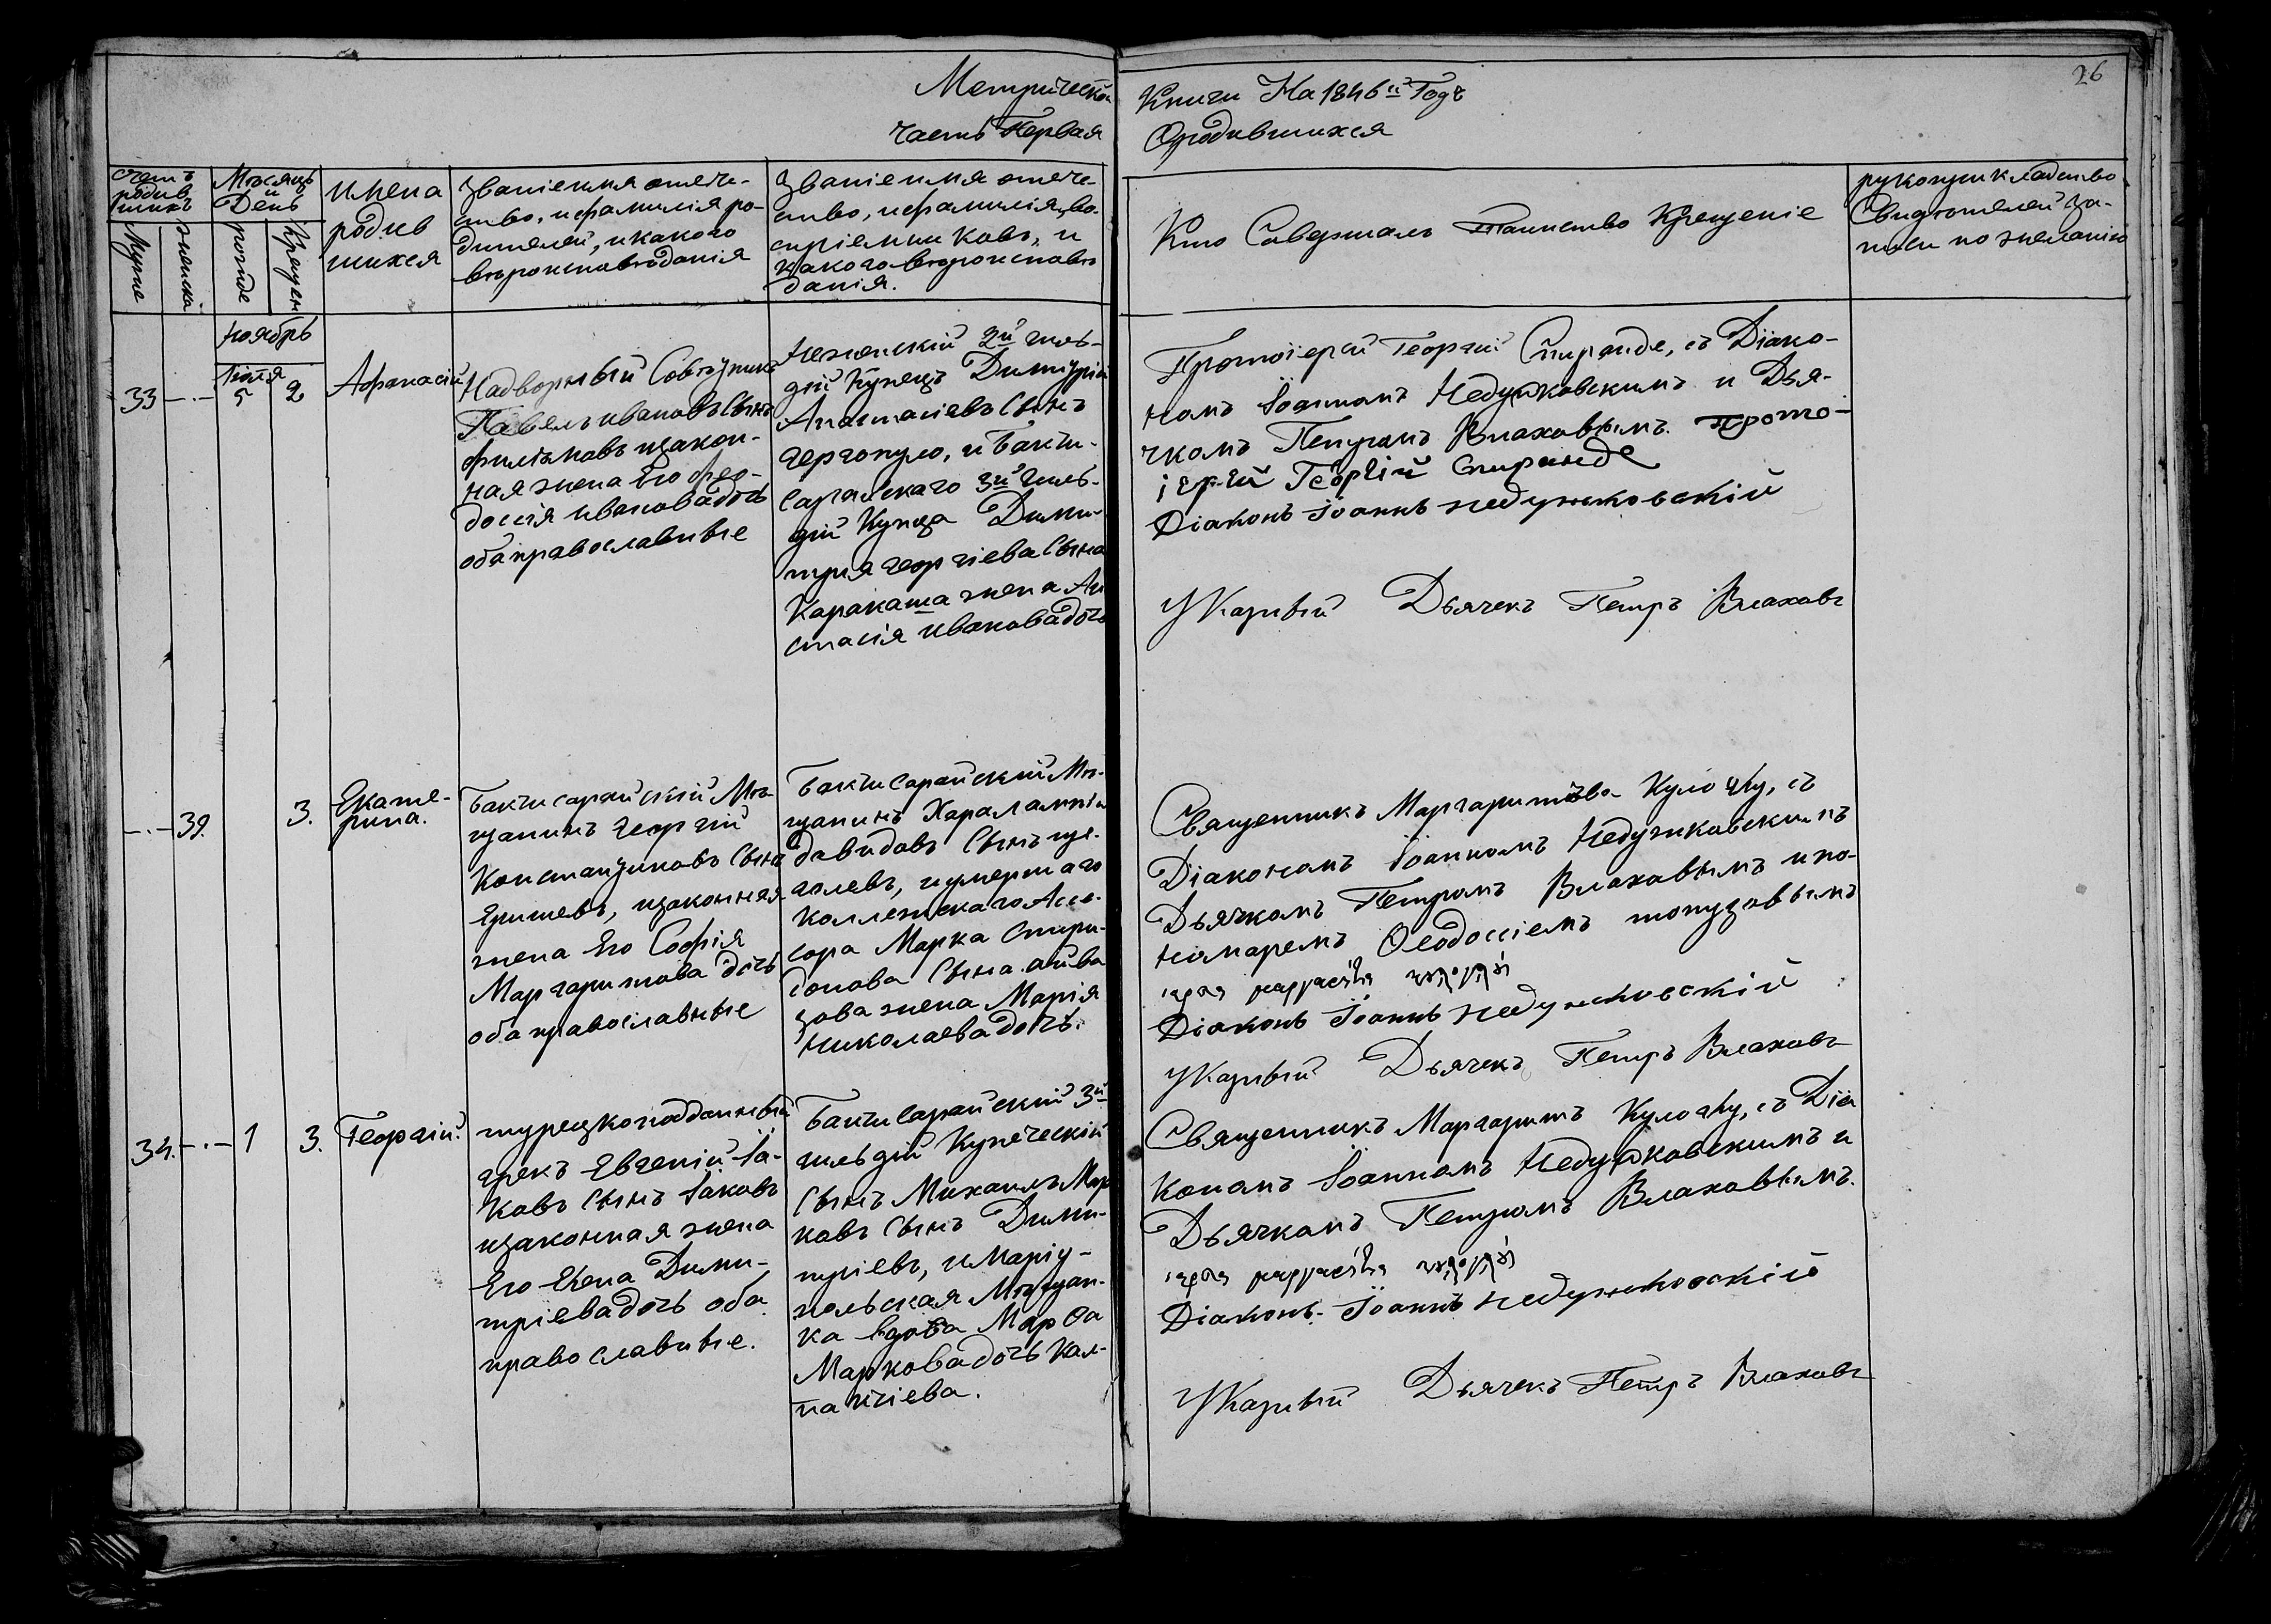 Метрической
часть Первая
Книги На 1846й Годъ
О родившихся
26
Счетъ
родив
шихъ
Мѣсяцъ
и
День
Муже
женска
рожде
Крещен
имена
родив
шихся
Званіе имя отече-
ство, и фамилія ро-
дителей, и какого
вѣроисповѣданія
Званіе имя отече-
ство, и фамилія, во-
спріемниковъ, и
какого вѣроисповѣ
данія.
Кто Совершалъ Таинство Крещеніе
рукоприкладство
Свидѣтелей за-
писи по желанію
ноябрь
33 5 2 Афанасій
Надворный Совѣтникъ
Павелъ ивановъ Сынъ
изакон-
ная жена Его Фео-
досія иванова дочь
оба православные
Неженскій 2й гиль-
дій Купецъ Димитрій
Анастасіевъ Сынъ
чергопуло, и Бакчи-
сарайскаго 3й гиль-
дій Купца Дими-
трія георгіева Сына
Каракаша жена Ан
стасія иванова дочь
Протоіерей Георгій Спиранде, съ Діако-
номъ Іоанномъ Недужковскимъ и Дья-
чкомъ Петромъ Влаховымъ. Прото-
іерей Георгій Спиранде
Діаконъ Іоаннъ недужковскій
Указный Дьячекъ Петръ Влаховъ
39. 3. Екате-
рина.
Бакчисарайскій Мѣ-
щанинъ георгій
Константиновъ Сынъ
изаконная
жена Его Софія
Маргаритова дочь
оба православные
Бакчисарайскій Мѣ-
щанинъ Харалампій
давидовъ Сынъ ще-
голевъ, и умершаго
Коллежскаго Ассе-
сора Марка Спири-
донова Сына айва
зова жена Марія
николаева дочь.
Священникъ Маргаритъ Кулочку, съ
Діакономъ Іоанномъ Недужковскимъ
Дьячкомъ Петромъ Влаховымъ и по-
номаремъ Ѳеодосіемъ топузовымъ
Діаконъ Іоаннъ недужковскій
Указный Дьячекъ Петръ Влаховъ
34. 1 3. Георгій.
турецкоподданный
грекъ Евгеній Іа-
ковъ Сынъ Іаковъ
изаконная жена
Его Елена Дими-
тріева дочь оба
православные.
Бакчисарайскій 3й
гильдій Купеческій
Сынъ Михаилъ Мар
ковъ Сынъ Дими-
тріевъ, и Маріу-
польская Мѣщан-
ка вдова Марѳа
Маркова дочь Кал-
па
Священникъ Маргаритъ Кулочку, съ Діа
кономъ Іоанномъ Недужковскимъ и
Дьячкомъ Петромъ Влаховымъ.
Діаконъ Іоаннъ недужковскій
Указный Дьячекъ Петръ Влаховъ